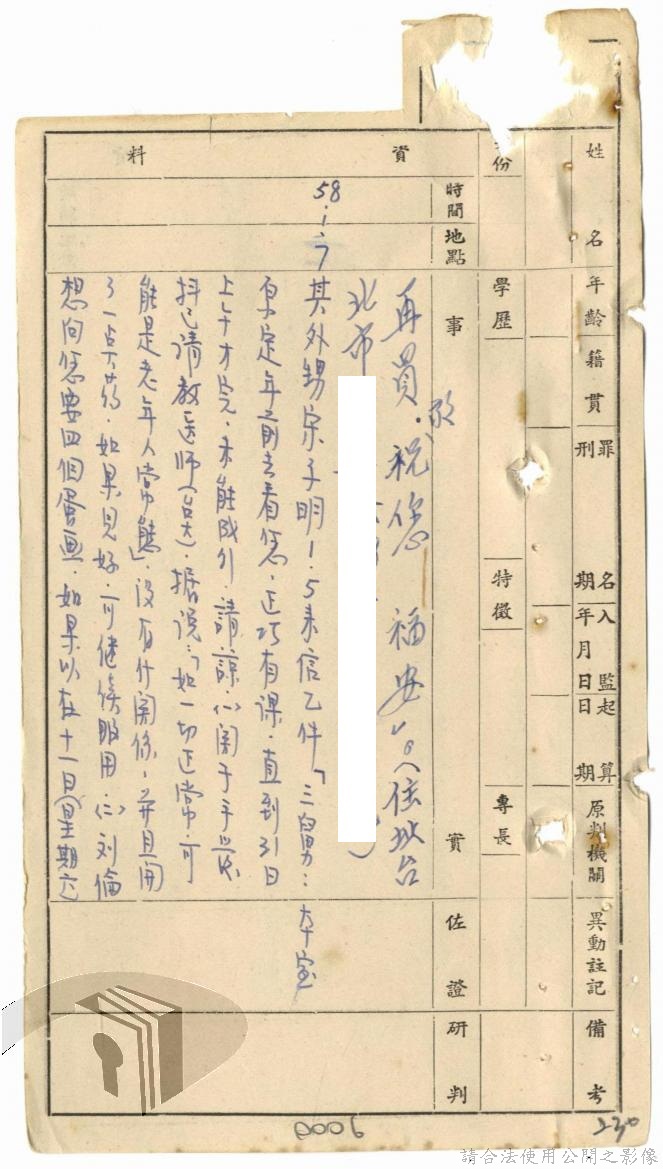 姓名
年齡
籍貫
罪名
刑期
入監年月日
起算日期
原判機關
異動註記
備考
份
學歷
特徵
專長
資料
時間
地點
事實
佐證
研判
再買.敬祝您 福安、。(住址台
北市.
58.1.7
其外甥宋子明1.5來信乙件「三舅:
原定年前去看您,正巧有課,直到31日
上午才完,未能成行,請諒.(一)関于手
抖已請教医師(台大).据說:「如一切正常,可
能是老年人常態」,沒有什関係,并且開
了一点药.如果見好,可继續服用.(二)刘倫
想向您要四個蛋画.如果以在十一日(星期六
本室
0006
230
請合法使用公開之影像